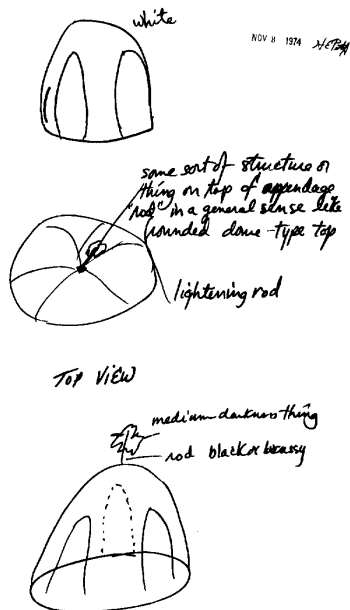 white
NOV 8 1974
some sort of structure or
thing on top of appendage
"rod" in a general sense like
rounded dome-type top
lightening rod
TOP VIEW
medium darkness thing
rod black or brassy